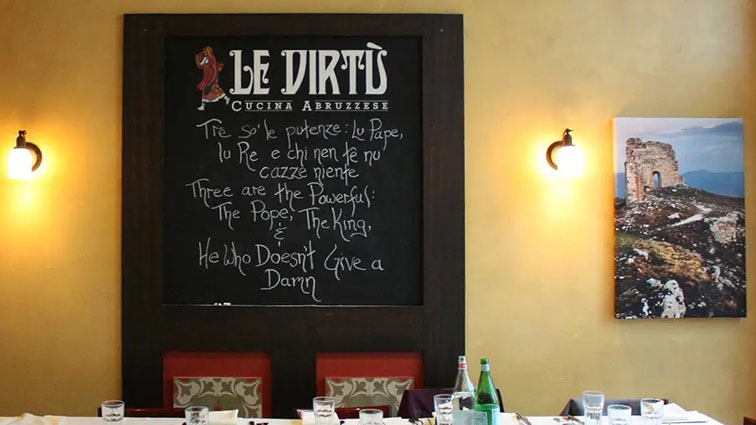 LE VIRTÙ
CUCINA ABRUZZESE
Trè so' le putenze: Lu Pape,
lu Re e chi nen tè nu
cazze niente
Three are the Powerful:
The Pope, The King,
&
He Who Doesn't Give a
Damn